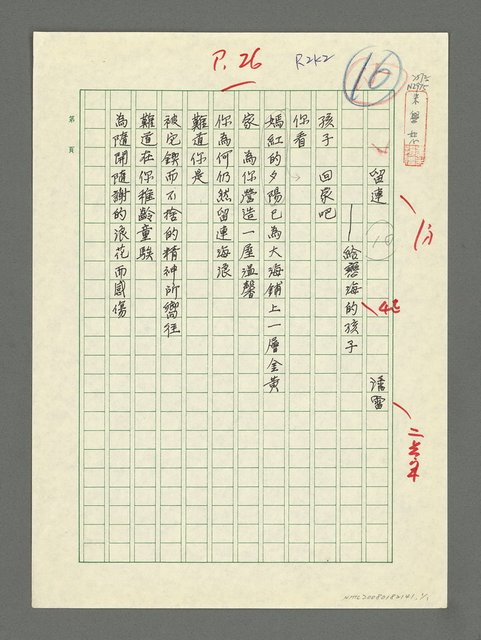 P. 26
R2K2
16
留連
潘雷
——給戀海的孩子
孩子 回家吧
你看
嫣紅的夕陽已為大海鋪上一層金黃
家 為你營造一屋溫馨
你為何仍然留連海浪
難道你是
被它鍥而不捨的精神所嚮往
難道在你稚齡童騃
為隨開隨謝的浪花而感傷
第 頁
NMTL20080182141